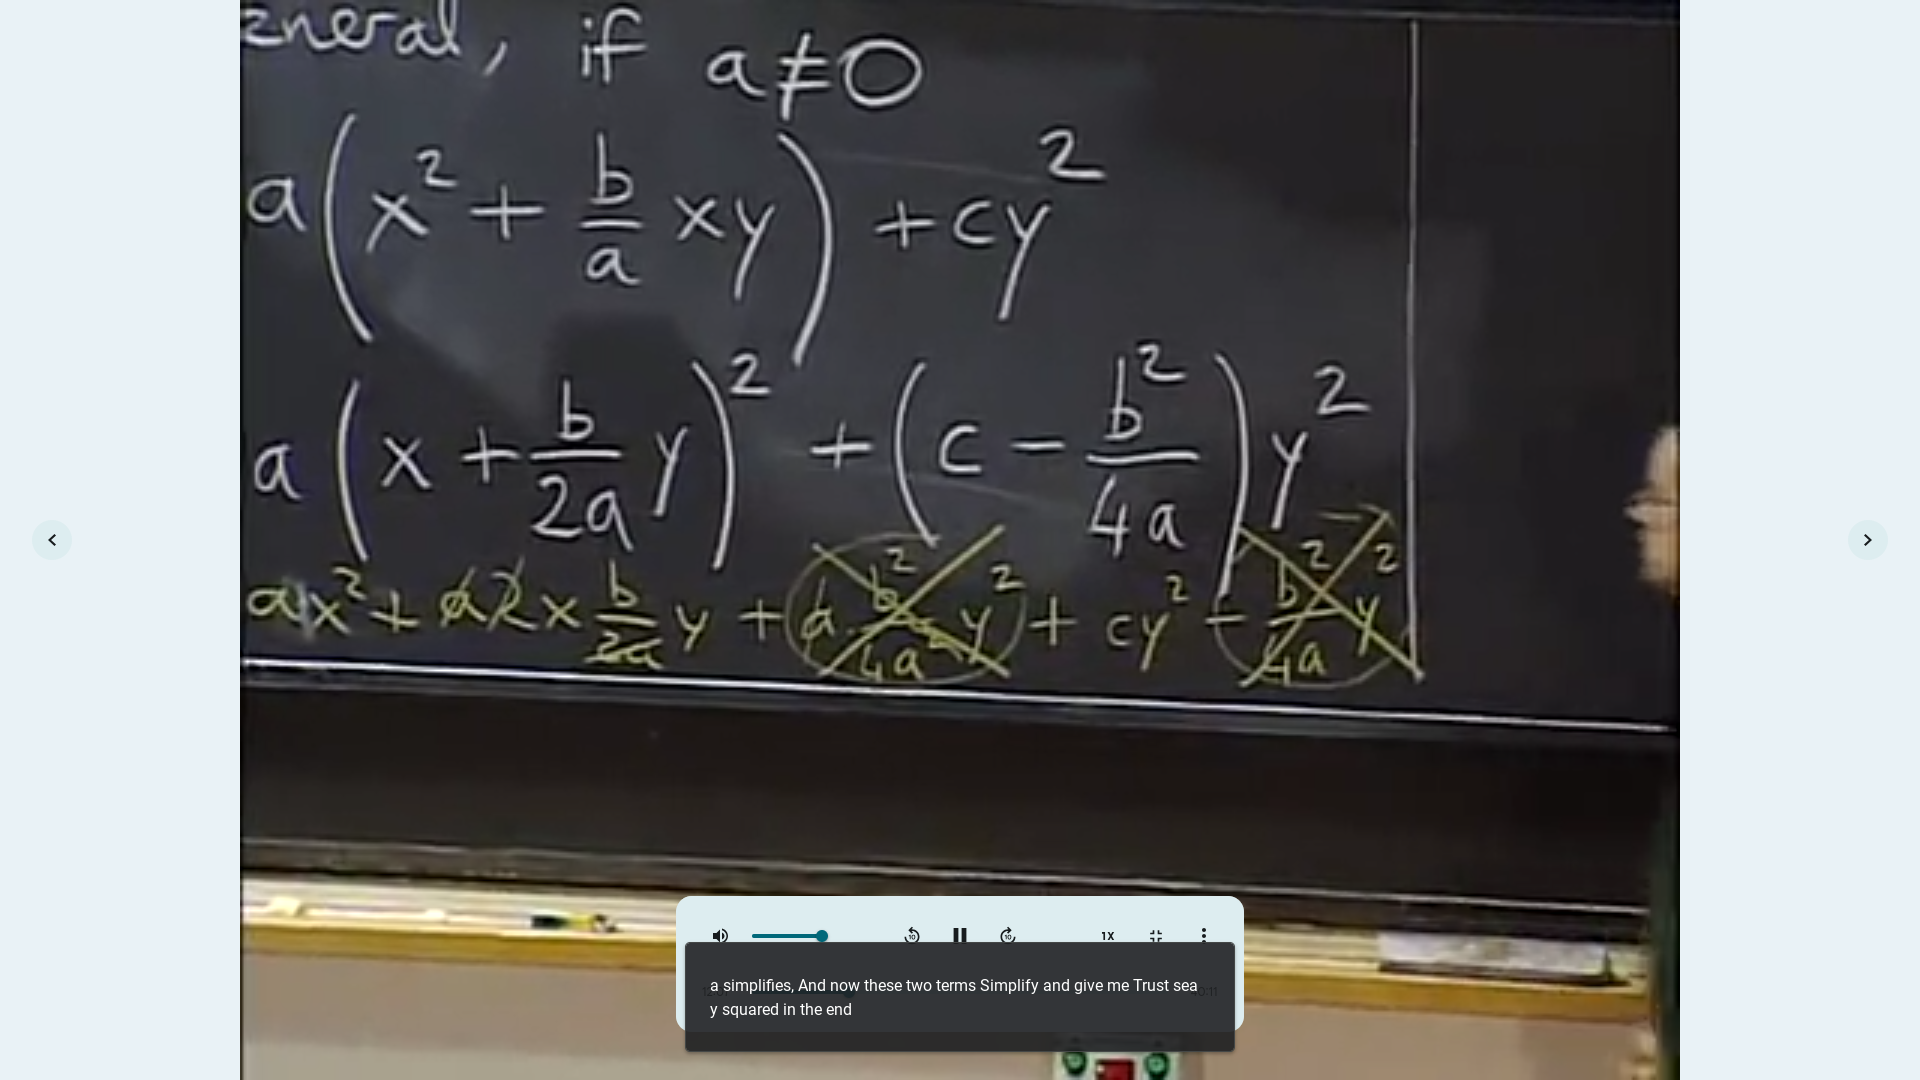 eneral, if a≠0
a(x² + b/a xy) + cy²
a(x + b/2a y)² + (c − b²/4a) y²
ax² + a2x b/2a y + a·b²/4a² y² + cy² − b²/4a y²
1X
a simplifies, And now these two terms Simplify and give me Trust sea
y squared in the end